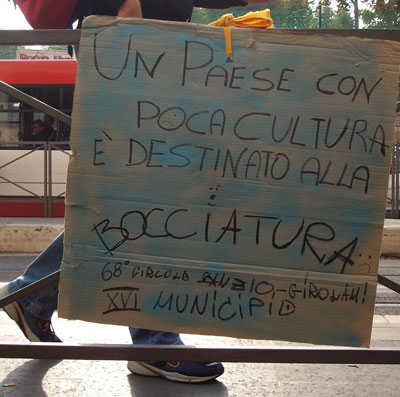 UN PAESE CON
POCA CULTURA
È DESTINATO ALLA
:
BOCCIATURA
68° CIRCOLO -GIROLAMI
XVI MUNICIPIO